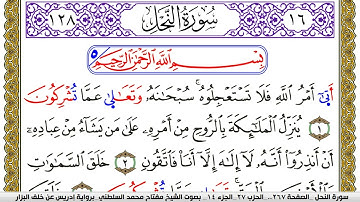 ١٢٨ سُورَةُ النَّحْلِ ١٦
بِسْمِ اللَّهِ الرَّحْمَٰنِ الرَّحِيمِ
أَتَىٰ أَمْرُ اللَّهِ فَلَا تَسْتَعْجِلُوهُ سُبْحَانَهُ وَتَعَالَىٰ عَمَّا تُشْرِكُونَ
١ يُنَزِّلُ الْمَلَائِكَةَ بِالرُّوحِ مِنْ أَمْرِهِ عَلَىٰ مَن يَشَاءُ مِنْ عِبَادِهِ
أَنْ أَنذِرُوا أَنَّهُ لَا إِلَٰهَ إِلَّا أَنَا فَاتَّقُونِ ٢ خَلَقَ السَّمَاوَاتِ
سورة النحل الصفحة ٢٦٧... الحزب ٢٧ الجزء ١٤ بصوت الشيخ مفتاح محمد السلطني برواية إدريس عن خلف البزار